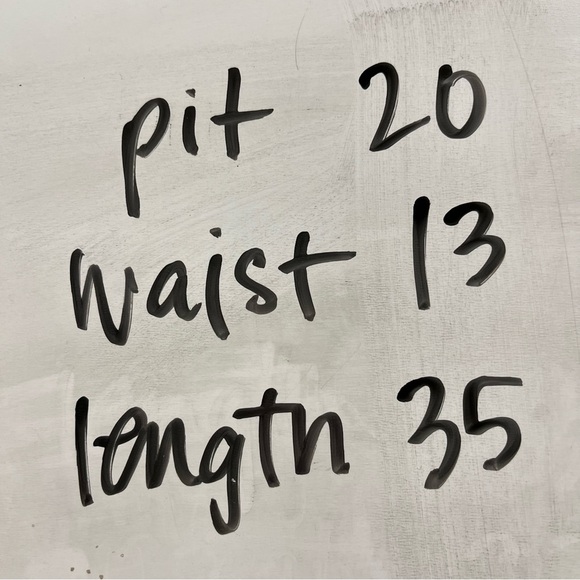 pit 20
waist 13
length 35